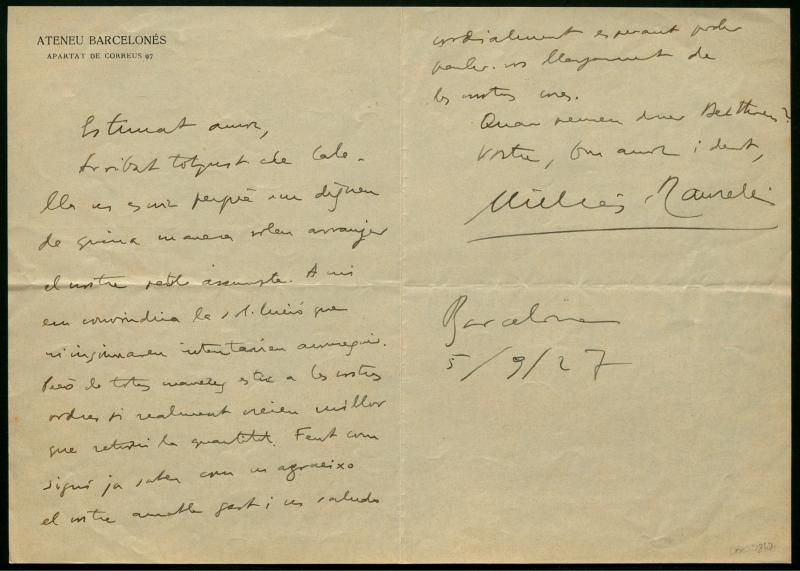 ATENEU BARCELONÉS
APARTAT DE CORREUS 97
Estimat amic,
Arribat tot just de Cale-
lla us escric perquè em digueu
de quina manera voleu arranjar
el nostre petit assumpte. A mi
em convindria la sol·lució que
m'insinuareu intentaríeu aconseguir.
Però de totes maneres estic a les vostres
ordres si realment creieu millor
que retorni la quantitat. Feu com
sigui ja sabeu com us agraeixo
el vostre amable gest i us saludo
cordialment esperant poder
parlar-vos llargament de
les nostres coses.
Quan Beethoven?
Vostre, bon amic i devot,
Millàs-Raurell
Barcelona
5/9/27